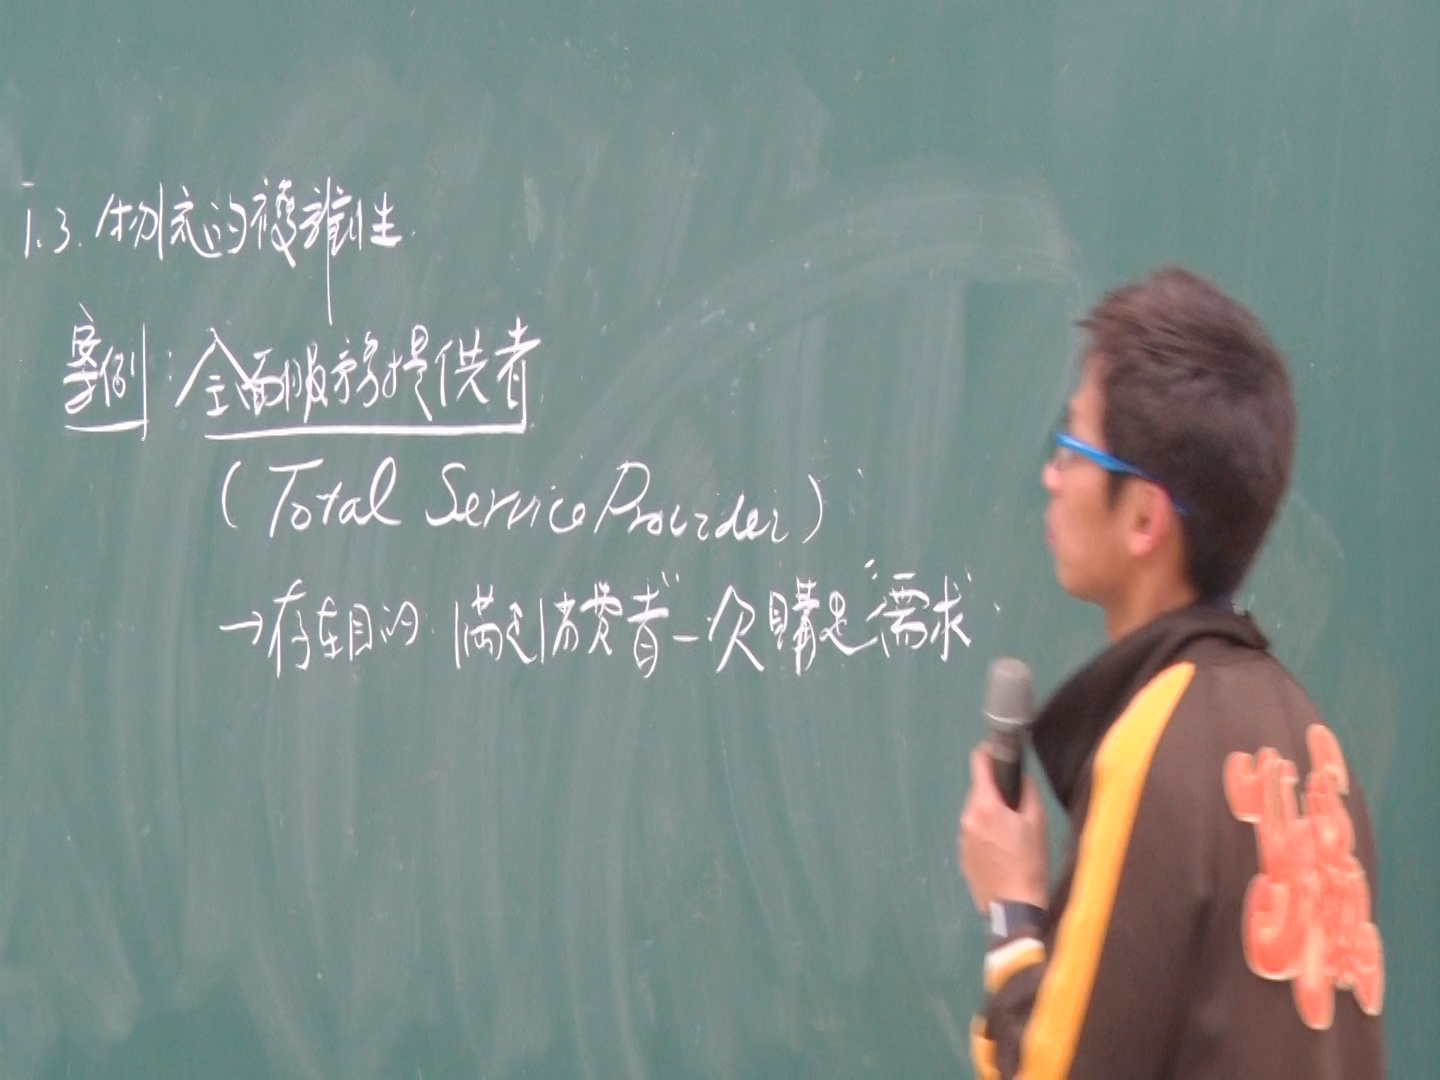 1.3. 物流的複雜性
案例：全面服務提供者
(Total Service Provider)
→存在目的：滿足消費者“一次購足”需求